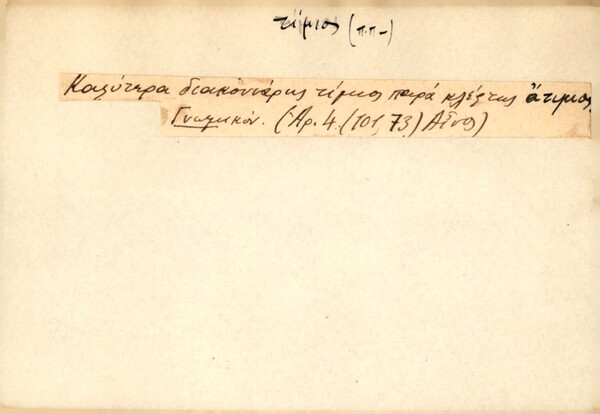 τίμιος (π.π.–)
Καλύτερα διακονιάρης τίμιος παρά κλέφτης ἄτιμος.
Γνωμικόν. (Ἀρ. 4. (101, 73) Αἶνος)